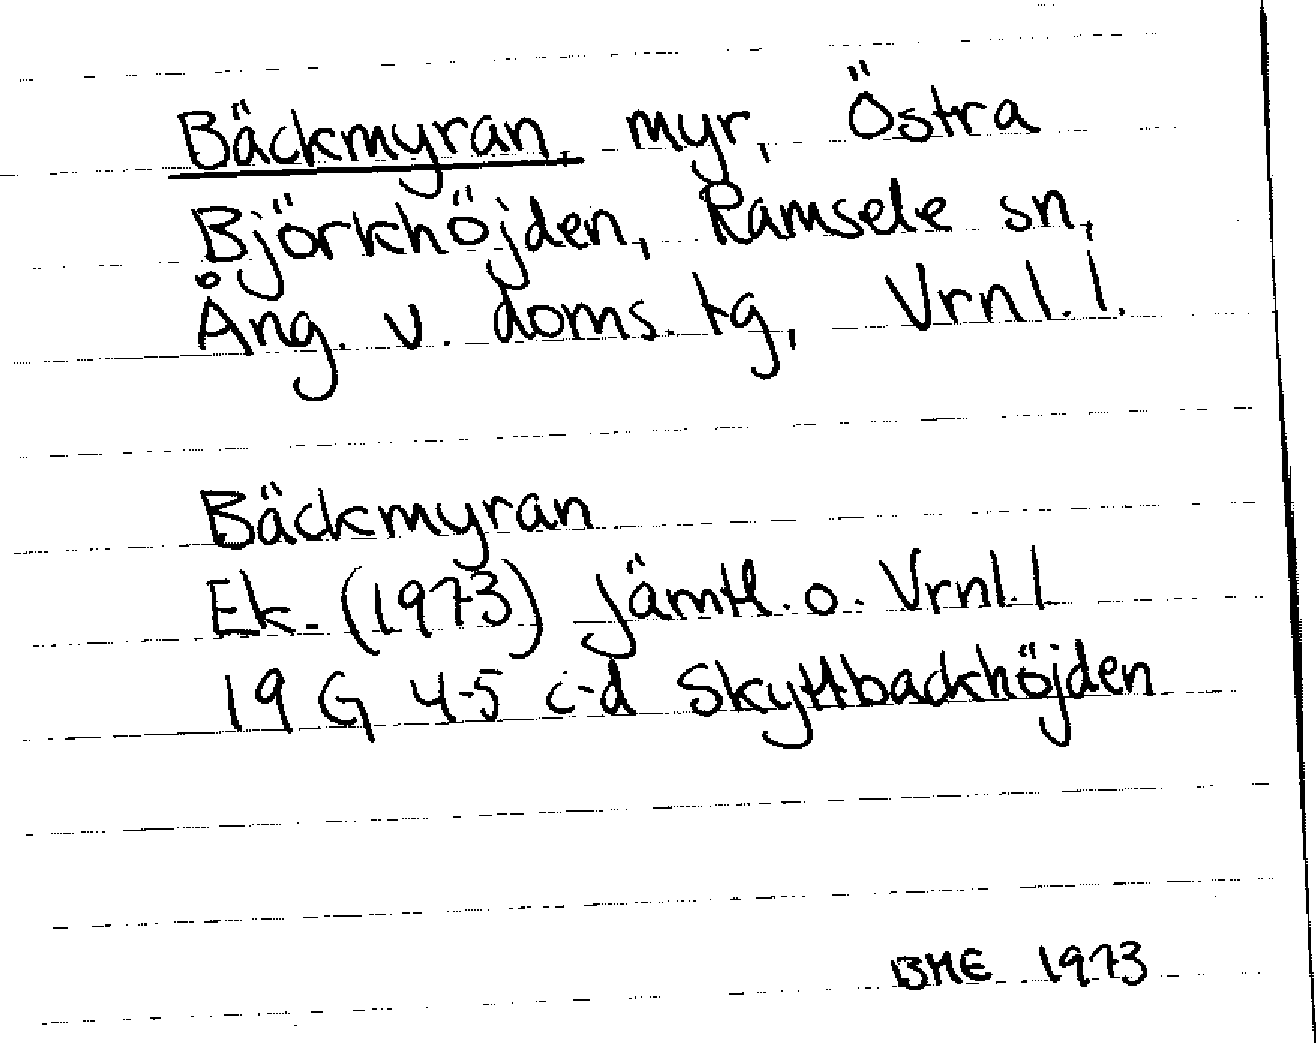 Bäckmyran, myr, Östra
Björkhöjden, Ramsele sn,
Ång. v. doms. tg, Vrnl. l.
Bäckmyran
Ek. (1973) Jämtl. o. Vrnl. l
19 G 4-5 c-d Skyttbackhöjden
BME 1973